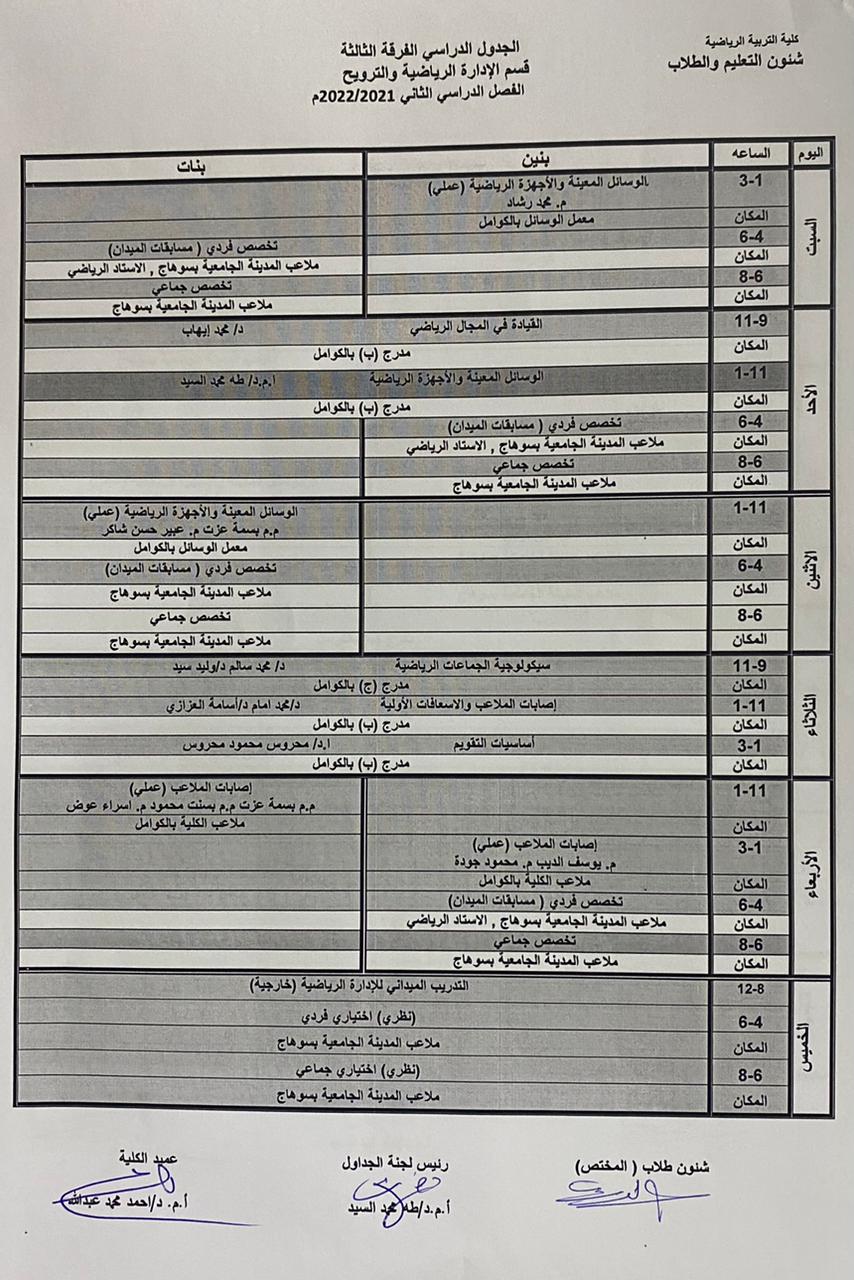 كلية التربية الرياضية
شئون التعليم والطلاب
الجدول الدراسي الفرقة الثالثة
قسم الإدارة الرياضية والترويح
الفصل الدراسي الثاني 2022/2021م
اليوم الساعه بنين بنات
السبت
3-1 الوسائل المعينة والأجهزة الرياضية (عملي)
م. محمد رشاد
المكان معمل الوسائل بالكوامل
6-4 تخصص فردي ( مسابقات الميدان)
المكان ملاعب المدينة الجامعية بسوهاج , الاستاد الرياضي
8-6 تخصص جماعي
المكان ملاعب المدينة الجامعية بسوهاج
الأحد
11-9 القيادة في المجال الرياضي د/ محمد إيهاب
المكان مدرج (ب) بالكوامل
1-11 الوسائل المعينة والأجهزة الرياضية ا.م.د/ طه محمد السيد
المكان مدرج (ب) بالكوامل
6-4 تخصص فردي ( مسابقات الميدان)
المكان ملاعب المدينة الجامعية بسوهاج , الاستاد الرياضي
8-6 تخصص جماعي
المكان ملاعب المدينة الجامعية بسوهاج
الاثنين
1-11 الوسائل المعينة والأجهزة الرياضية (عملي)
م.م بسمة عزت م. عبير حسن شاكر
المكان معمل الوسائل بالكوامل
6-4 تخصص فردي ( مسابقات الميدان)
المكان ملاعب المدينة الجامعية بسوهاج
8-6 تخصص جماعي
المكان ملاعب المدينة الجامعية بسوهاج
الثلاثاء
11-9 سيكولوجية الجماعات الرياضية د/ محمد سالم د/وليد سيد
المكان مدرج (ج) بالكوامل
1-11 إصابات الملاعب والاسعافات الأولية د/محمد امام د/أسامة العزازي
المكان مدرج (ب) بالكوامل
3-1 أساسيات التقويم ا.د/ محروس محمود محروس
المكان مدرج (ب) بالكوامل
الأربعاء
1-11 إصابات الملاعب (عملي)
م.م بسمة عزت م.م بسنت محمود م. اسراء عوض
المكان ملاعب الكلية بالكوامل
3-1 إصابات الملاعب (عملي)
م. يوسف الديب م. محمود جودة
المكان ملاعب الكلية بالكوامل
6-4 تخصص فردي ( مسابقات الميدان)
المكان ملاعب المدينة الجامعية بسوهاج , الاستاد الرياضي
8-6 تخصص جماعي
المكان ملاعب المدينة الجامعية بسوهاج
الخميس
12-8 التدريب الميداني للإدارة الرياضية (خارجية)
6-4 (نظري) اختياري فردي
المكان ملاعب المدينة الجامعية بسوهاج
8-6 (نظري) اختياري جماعي
المكان ملاعب المدينة الجامعية بسوهاج
شئون طلاب ( المختص) رئيس لجنة الجداول عميد الكلية
أ.م.د/طه محمد السيد أ.م. د/احمد محمد عبدالله